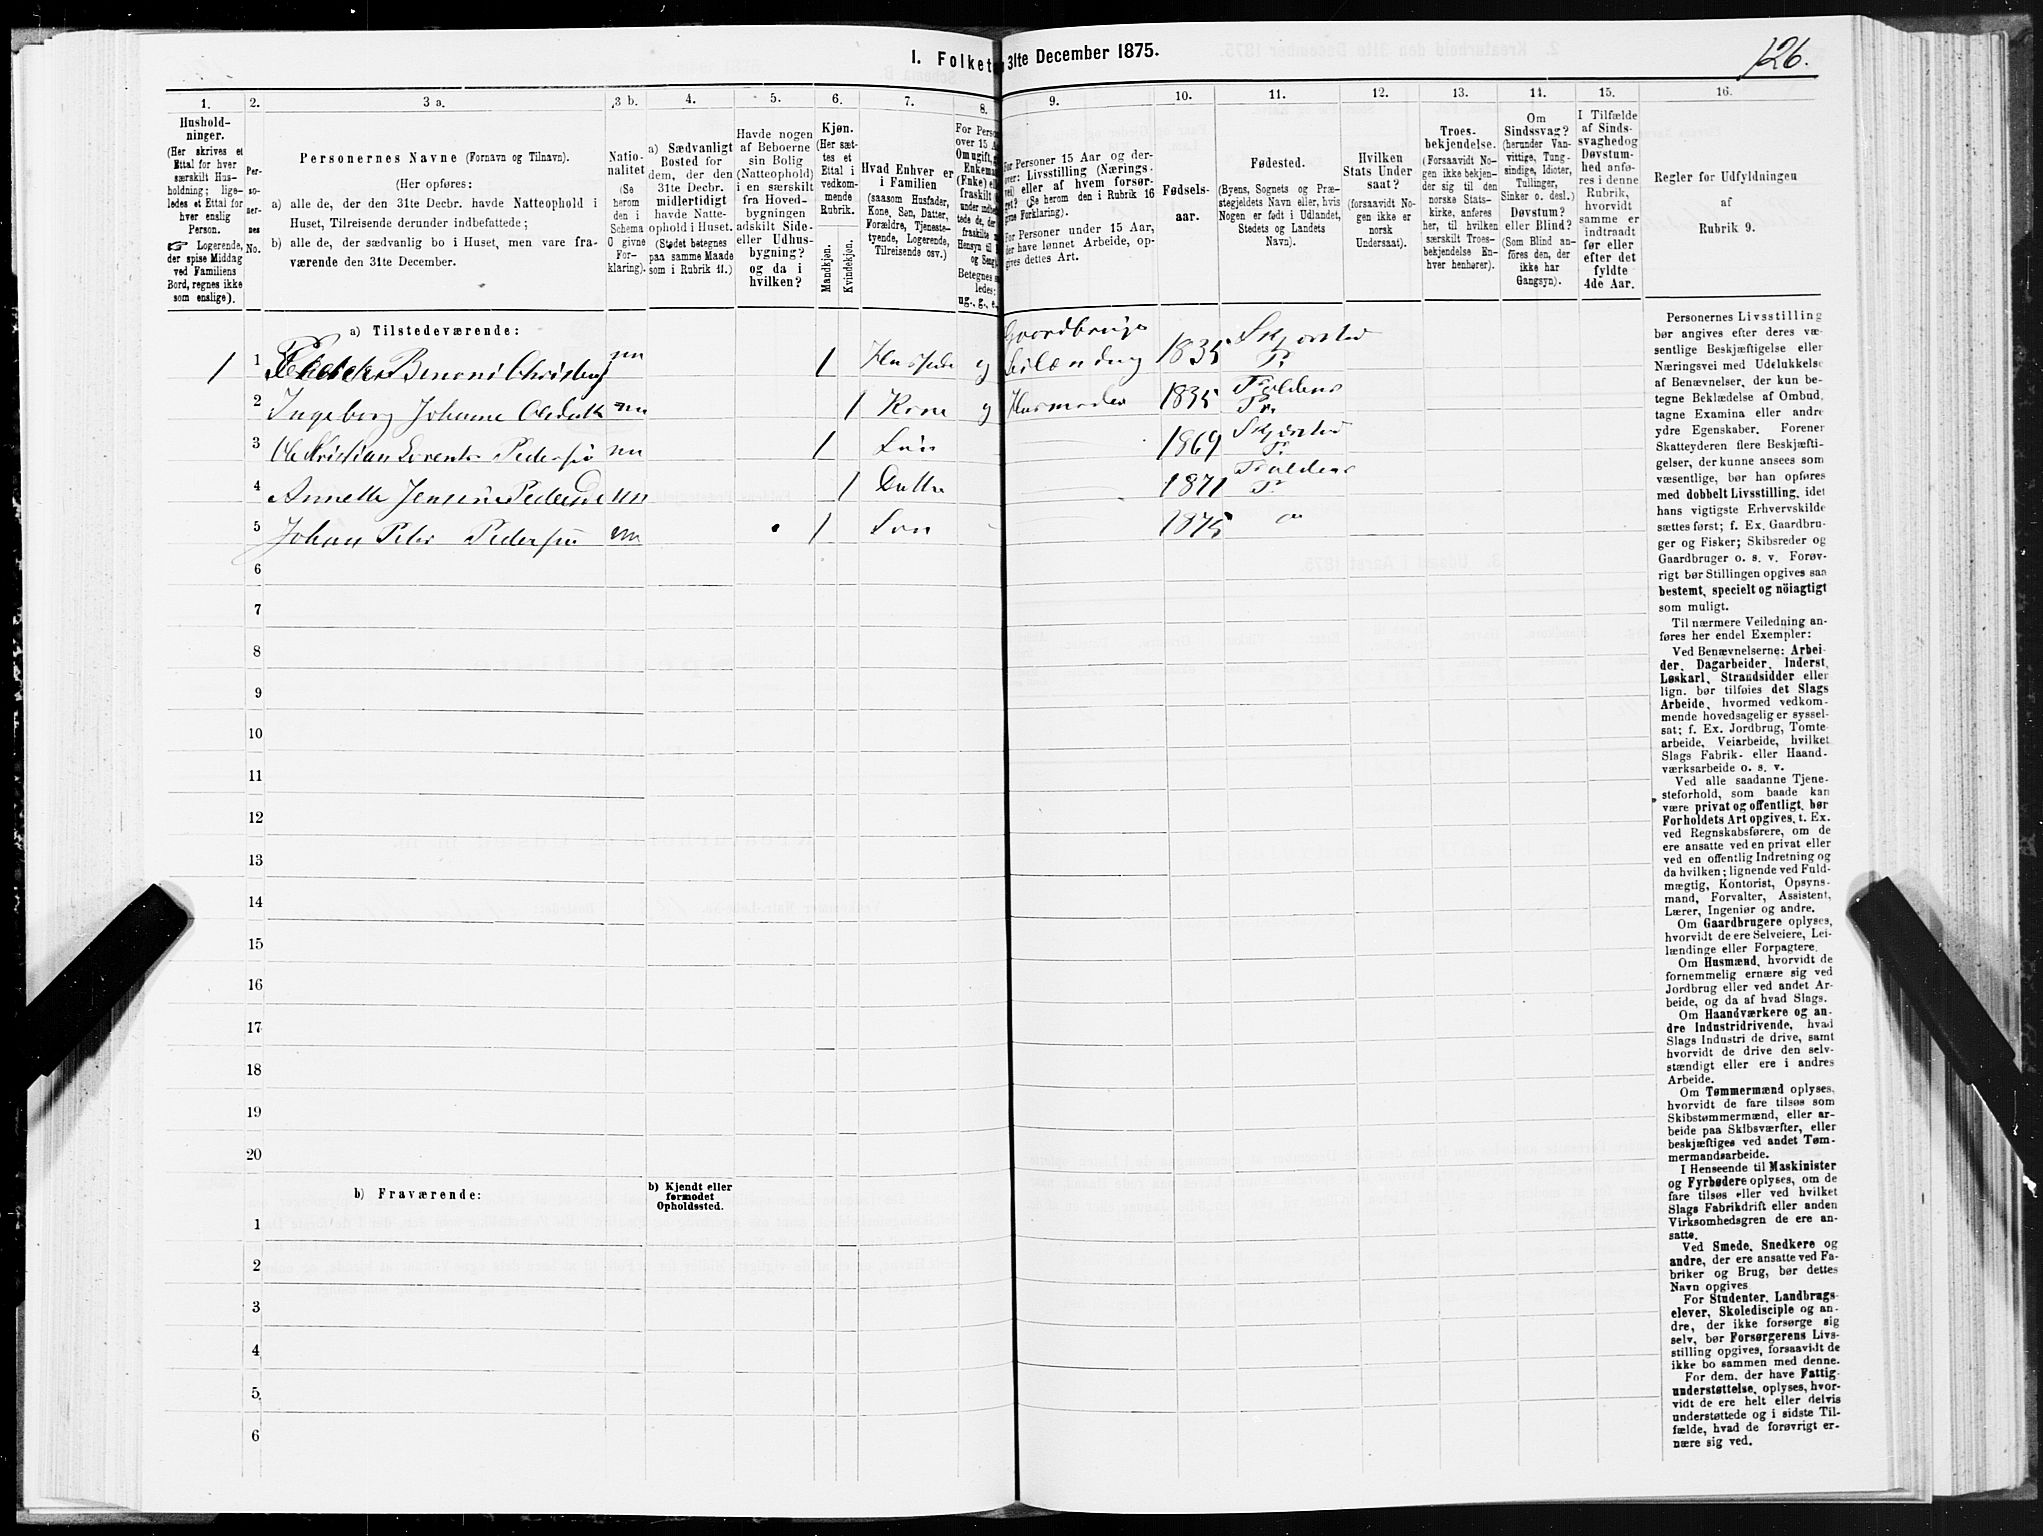 126.
I. Folket 31te December 1875.
1. 2. 3 a. 3 b. 4. 5. 6. 7. 8. 9. 10. 11. 12. 13. 14. 15. 16.
Hushold-
ninger.
(Her skrives et
Ettal for hver
særskilt Hus-
holdning; lige-
ledes et Ettal for
hver enslig
Person.
☞ Logerende,
der spise Middag
ved Familiens
Bord, regnes ikke
som enslige).
Per-
so-
ner-
nes
No.
Personernes Navne (Fornavn og Tilnavn).
(Her opføres:
a) alle de, der den 31te Decbr. havde Natteophold i
Huset, Tilreisende derunder indbefattede;
b) alle de, der sædvanlig bo i Huset, men vare fra-
værende den 31te December.
Natio-
nalitet
(Se
herom
den i
Schema
O givne
For-
klaring).
a) Sædvanligt
Bosted for
dem, der den
31te Decbr.
midlertidigt
havde Natte-
ophold i Huset.
(Stedet betegnes
paa samme Maade
som i Rubrik 11.)
Havde nogen
af Beboerne
sin Bolig
(Natteophold)
i en særskilt
fra Hoved-
bygningen
adskilt Side-
eller Udhus-
bygning?
og da i
hvilken?
Kjøn.
(Her sæt-
tes et
Ettal i
vedkom-
mende
Rubrik.
Mandkjøn.
Kvindekjøn.
Hvad Enhver er
i Familien
(saasom Husfader,
Kone, Søn, Datter,
Forældre, Tjeneste-
tyende, Logerende,
Tilreisende osv.)
For Perso
over 15 A
Om ugift,
Enkema
(Enke) el
fraskilt
under indbe
tede de, der
fraskilte
Hensyn til
og Seng
Betegnes s
ledes:
ug., g., e.
For Personer 15 Aar og der-
over: Livsstilling (Nærings-
vei) eller af hvem forsør-
get? (Se herom den i Rubrik 16
givne Forklaring).
For Personer under 15 Aar,
der have lønnet Arbeide, op-
gives dettes Art.
Fødsels-
aar.
Fødested.
(Byens, Sognets og Præ-
stegjeldets Navn eller, hvis
Nogen er født i Udlandet,
Stedets og Landets
Navn).
Hvilken
Stats Under
saat?
(forsaavidt No-
gen ikke er
norsk
Undersaat).
Troes-
bekjendelse.
(Forsaavidt No-
gen ikke bekjen-
der sig til den
norske Stats-
kirke, anføres
her, til hvilken
særskilt Troes-
bekjendelse En-
hver henhører).
Om
Sindssvag?
(herunder Van-
vittige, Tung-
sindige, Idioter,
Tullinger,
Sinker o. desl.)
Døvstum?
eller Blind?
(Som Blind an-
føres den, der
ikke har
Gangsyn).
I Tilfælde
af Sinds-
svaghed og
Døvstum-
hed anfø-
res i denne
Rubrik,
hvorvidt
samme er
indtraadt
før eller
efter det
fyldte
4de Aar.
Regler for Udfyldningen
af
Rubrik 9.
a) Tilstedeværende:
1 1 Benoni nn 1 g Gaardbruger Leilænding 1835 Skjerstad P.
2 Ingeborg Johanne nn 1 Kone g Husmoder 1835 Foldens Pr.
3 Ole Kristian Lorents Pedersen nn 1 Søn 1869 Skjerstad P.
4 Annette Jensine nn 1 Datter 1871 Foldens P.
5 Johan Peter Pedersen nn 1 Søn 1875
6
7
8
9
10
11
12
13
14
15
16
17
18
19
20
b) Fraværende:
b) Kjendt eller
formodet
Opholdssted.
1
2
3
4
5
6
Personernes Livsstilling
bør angives efter deres væ-
sentlige Beskjæftigelse eller
Næringsvei med Udelukkelse
af Benævnelser, der kun be-
tegne Beklædelse af Ombud,
tagne Examina eller andre
ydre Egenskaber. Forener
Skatteyderen flere Beskjæfti-
gelser, der kunne ansees som
væsentlige, bør han opføres
med dobbelt Livsstilling, idet
hans vigtigste Erhvervskilde
sættes først; f. Ex. Gaardbru-
ger og Fisker; Skibsreder og
Gaardbruger o. s. v. Forøv-
rigt bør Stillingen opgives saa
bestemt, specielt og nöiagtigt
som muligt.
Til nærmere Veiledning an-
føres her endel Exempler:
Ved Benævnelserne: Arbei-
der, Dagarbeider, Inderst,
Løskarl, Strandsidder eller
lign. bør tilføies det Slags
Arbeide, hvormed vedkom-
mende hovedsagelig er syssel-
sat; f. Ex. Jordbrug, Tomte-
arbeide, Veiarbeide, hvilket
Slags Fabrik- eller Haand-
værksarbeide o. s. v.
Ved alle saadanne Tjene-
steforhold, som baade kan
være privat og offentligt, bør
Forholdets Art opgives, t. Ex.
ved Regnskabsførere, om de
ere ansatte ved en privat eller
ved en offentlig Indretning og
da hvilken; lignende ved Fuld-
mægtig, Kontorist, Opsyns-
mand, Forvalter, Assistent,
Lærer, Ingeniør og andre.
Om Gaardbrugere oplyses,
hvorvidt de ere Selveiere, Lei-
lændinge eller Forpagtere.
Om Husmænd, hvorvidt de
fornemmelig ernære sig ved
Jordbrug eller ved andet Ar-
beide, og da af hvad Slags.
Om Haandværkere og an-
dre Industridrivende, hvad
Slags Industri de drive, samt
hvorvidt de drive den selv-
stændigt eller ere i andres
Arbeide.
Om Tømmermænd oplyses,
hvorvidt de fare tilsøs som
Skibstømmermænd, eller ar-
beide paa Skibsværfter, eller
beskjæftiges ved andet Tøm-
mermandsarbeide.
I Henseende til Maskinister
og Fyrbødere oplyses, om de
fare tilsøs eller ved hvilket
Slags Fabrikdrift eller anden
Virksomhedsgren de ere an-
satte.
Ved Smede, Snedkere og
andre, der ere ansatte ved Fa-
briker og Brug, bør dettes
Navn opgives
For Studenter, Landbrugs-
elever, Skoledisciple og an-
dre, der ikke forsørge sig
selv, bør Forsørgerens Livs-
stilling opgives, forsaavidt de
ikke bo sammen med denne.
For dem, der have Fattig-
understøttelse, oplyses, hvor-
vidt de ere helt eller delvis
understøttede og i sidste Til-
fælde, hvad de forøvrigt er-
nære sig ved.